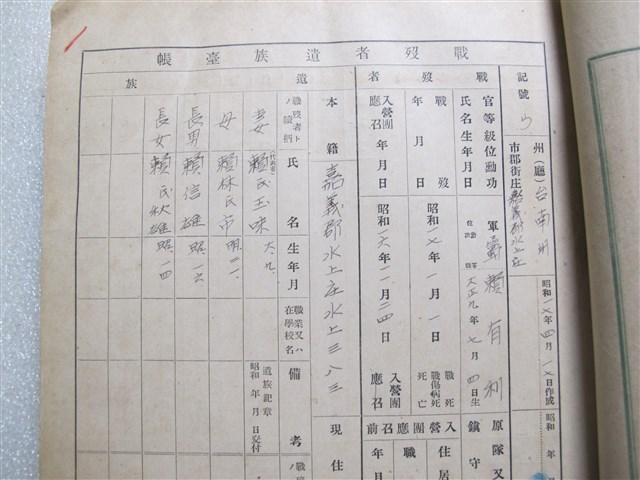 戰歿者遺族臺帳
記號 ウ
州(廳) 台南州
市郡街庄 嘉義郡水上庄
昭和一七年四月一七日作成
昭和 年
戰歿者
官等級位勳功 軍屬
氏名生年月日 賴有利 大正九年七月四日生
戰歿年月日 昭和一七年一月一日 戰死 戰傷病死 死亡
入營團應召年月日 昭和一六年一一月二四日 入營團 應召
本籍 嘉義郡水上庄水上三八三
現住
原隊又
鎭守
入營團應召前
住居
職
年月
遺族
戰歿者トノ續柄 氏名 生年月 職業又ハ在學校名 備考
妻 (代表者) 賴氏玉味 大、九、
母 賴林氏市 明二一、
長男 賴信雄 昭一六
長女 賴氏秋雄 昭一四
遺族記章
昭和 年 月 日交付